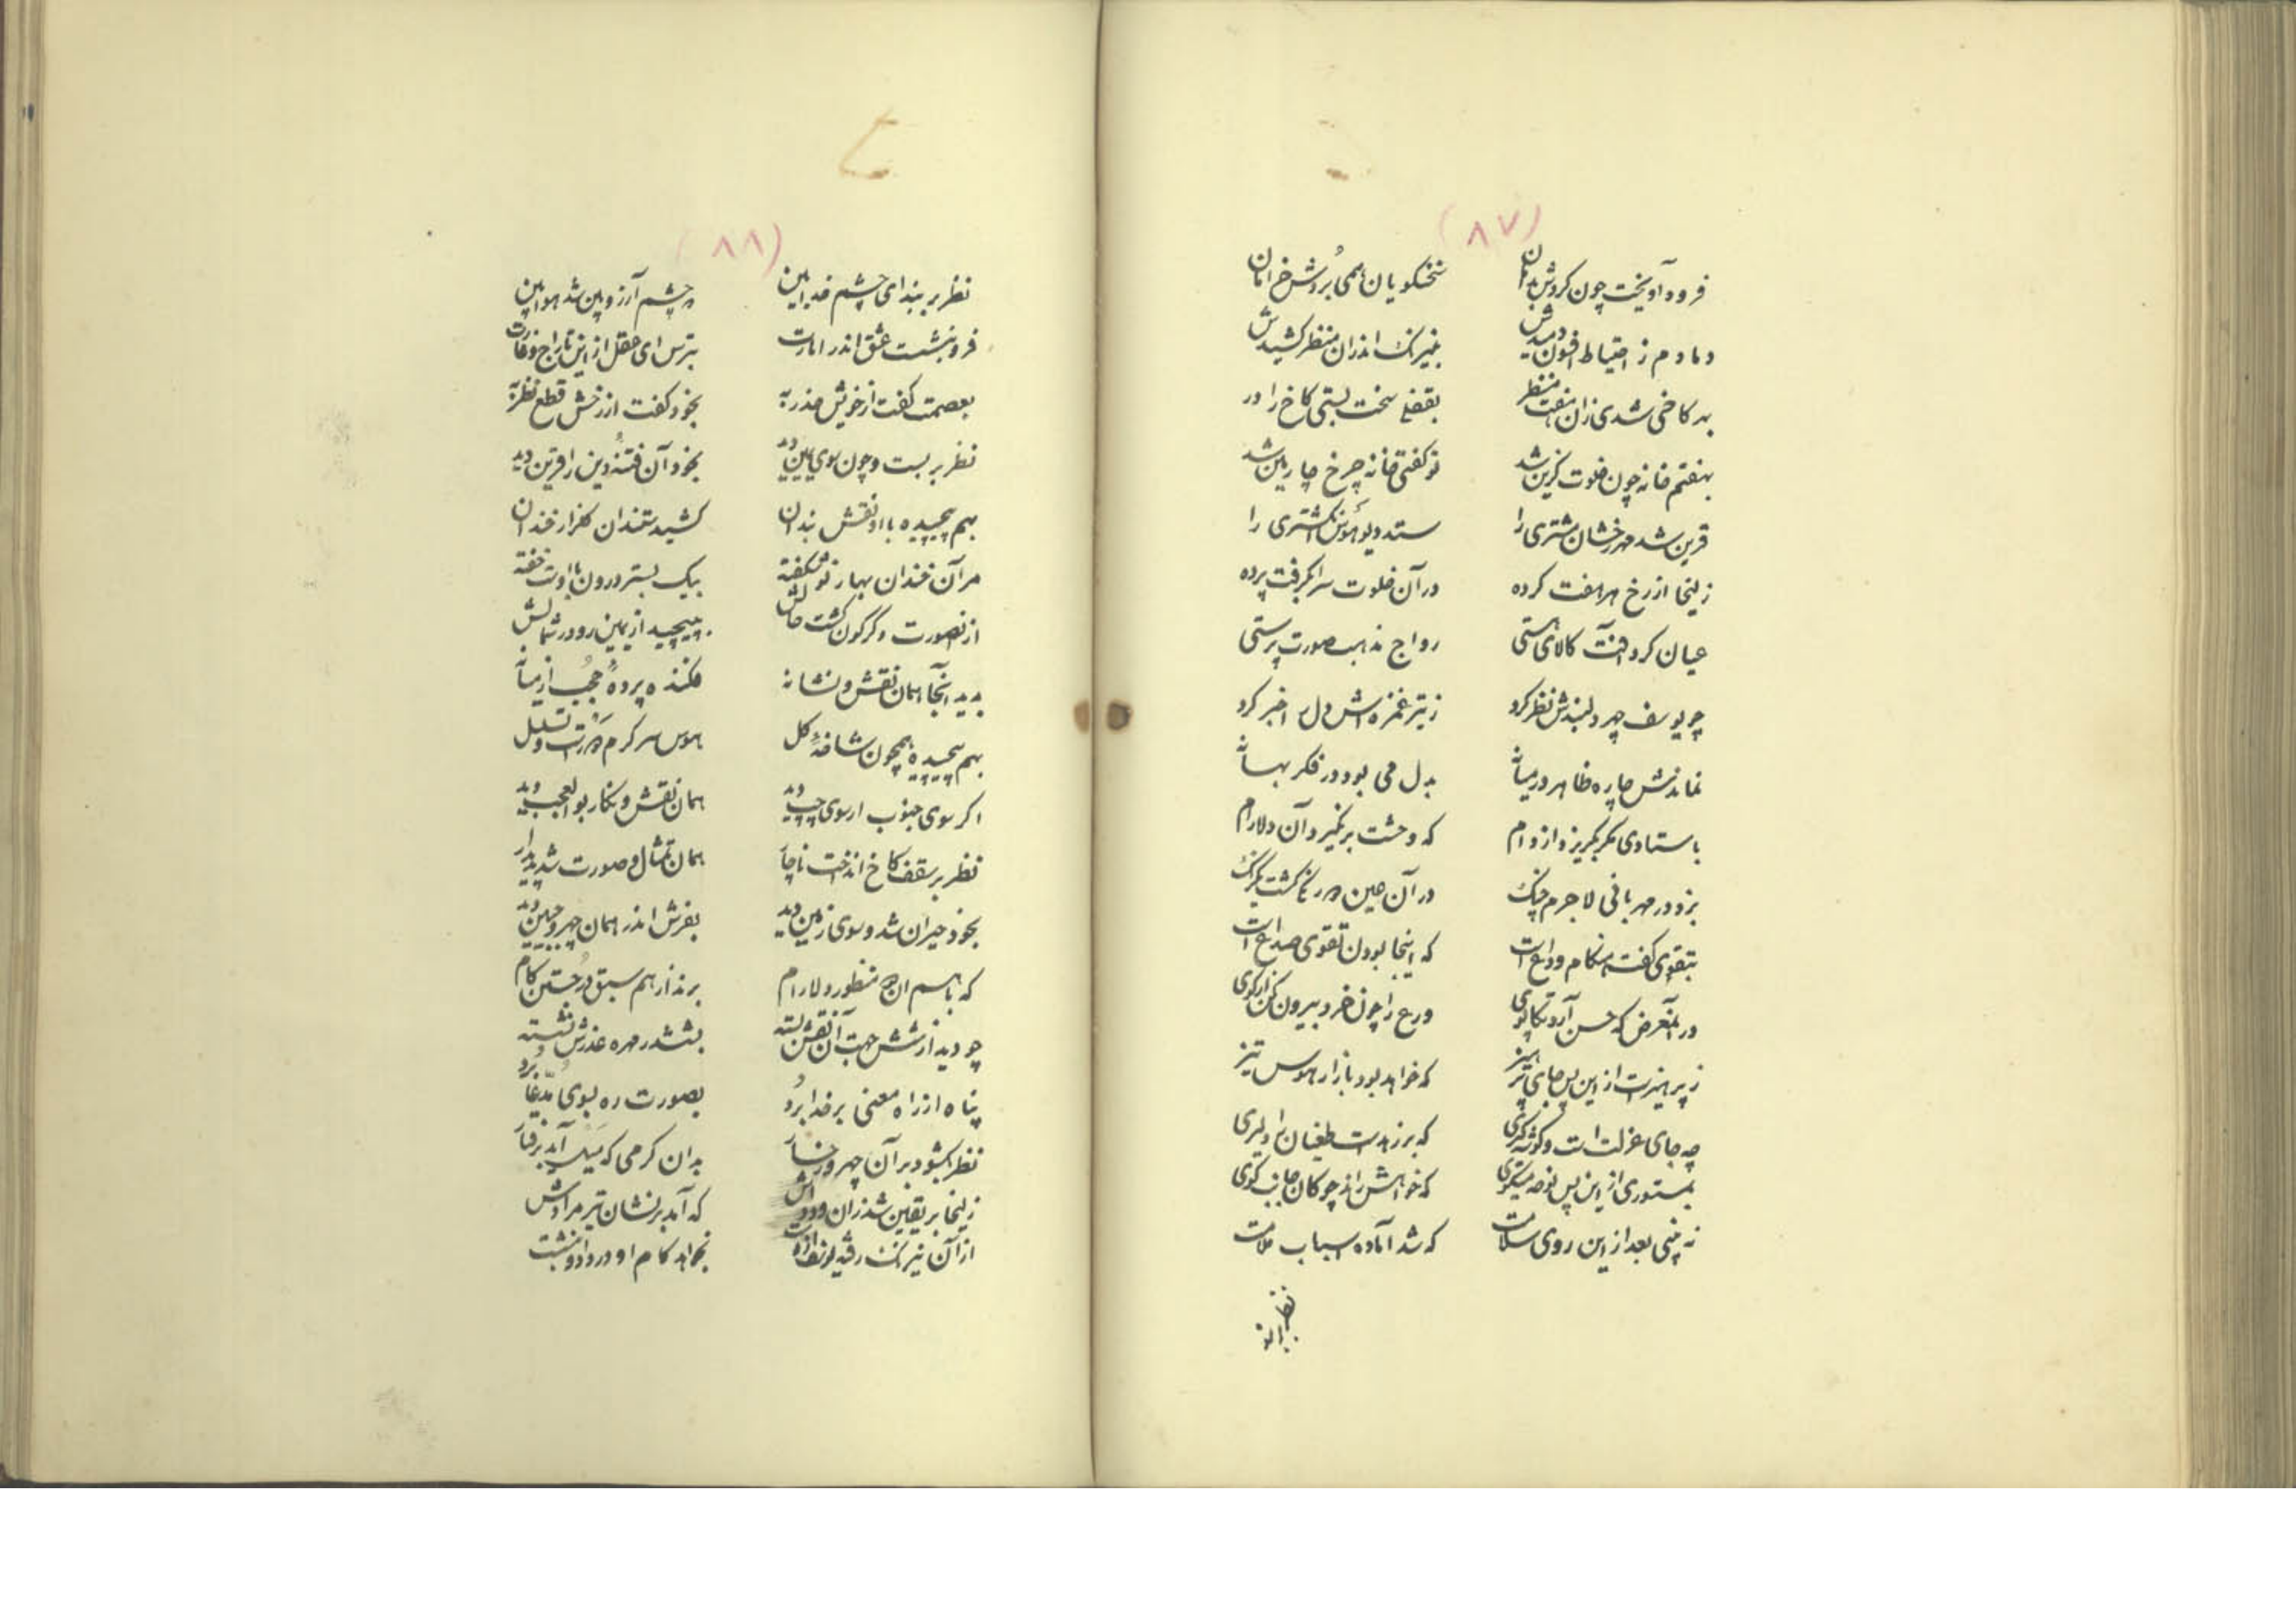 (۸۷)
فرود آویخت چون کردش بدامان سخنگویان همی بردش خرامان
دمادم ز احتیاط افسون دمیدش به نیرنگ اندران منظر کشیدش
بهر کاخی شدی زان هفت منظر بقفلی سخت بستی کاخ را در
بهفتم خانه چون خلوت گزین شد تو گفتی خانه چرخ چارمین شد
قرین شد مهر رخشان مشتری را ستد دیو هوس انگشتری را
زلیخا از رخ هر هفت کرده در آن خلوت سرا بگرفت پرده
عیان کرد آفت کالای هستی رواج مذهب صورت پرستی
چو یوسف چهر دلبندش نظر کرد ز تیر غمزه اش دل را خبر کرد
نماندش چاره ظاهر در میانه بدل می بود در فکر بهانه
باستادی مگر بگریزد از دام که وحشت بر نگیرد آن دلارام
بزد در مهربانی لاجرم چنگ در آن حین
بتقوی گفت هنگام وداع است که اینجا بودن تقوی صداع است
در آنمعرض که حسن آرد تکاپوی ورع را چون خرد بیرون کن از کوی
ز پرهیزت از این پس جای پرهیز که خواهد بود بازار هوس تیز
چه جای عزلت است و گوشه گیری که بر زهدت طغیان را دلیری
بمستوری از این پس نوحه میگوی که خواهش راند چوگان جانب گوی
نه بینی بعد از این روی سلامت که شد آماده اسباب ملامت
نظر بر بند
(۸۸)
نظر بر بند ای چشم خدابین که چشم آرزوبین شد هوابین
فرو بنشست عشق اندر امارت بترس ای عقل از این تاراج و غارت
بعصمت گفت از خویش حذر به بخود گفت از رخش قطع نظر به
نظر بر بست و چون سوی یمین دید بخود آن فتنه دین را قرین دید
بهم پیچیده با او نقش بندان کشیدستند آن گلزار خندان
مر آن خندان بهار نو شکفته بیک بستر درون با اوست خفته
از آنصورت دگرگون گشت حالش بپیچید از یمین رو در شمالش
بدید آنجا همان نقش و نشانه فکنده پرده حجب از میانه
بهم پیچیده همچون شاخه گل هوس سرگرم
اگر سوی جنوب ار سوی چپ دید همان نقش و نگار بوالعجب دید
نظر بر سقف کاخ انداخت ناچار همان تمثال و صورت شد پدیدار
بخود حیران شد و سوی زمین دید بفرش اندر همان چهر و جبین دید
که با هم آن دو منظور دلارام برند از هم سبق در جستن کام
چو دید از شش جهت آن نقش بسته بششدر مهره عذرش نشسته
پناه از راه معنی بر خدا برد بصورت ره بسوی مدعا برد
نظر بگشود بر آن چهر و رخسار بدان گرمی که میل آمد برفتار
زلیخا بر یقین شد زان ودادش که آمد بر نشان تیر مرادش
از آن نیرنگ بخواهد کام او در داد و